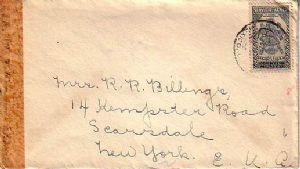 Mrs. R. R. Billings,
14 Kempster Road
Scarsdale
New York.